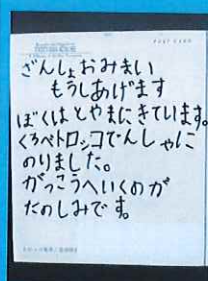 POST CARD
ざんしょおみまい
もうしあげます
ぼくはとやまにきています。
くろべトロッコでんしゃに
のりました。
がっこうへいくのが
たのしみです。